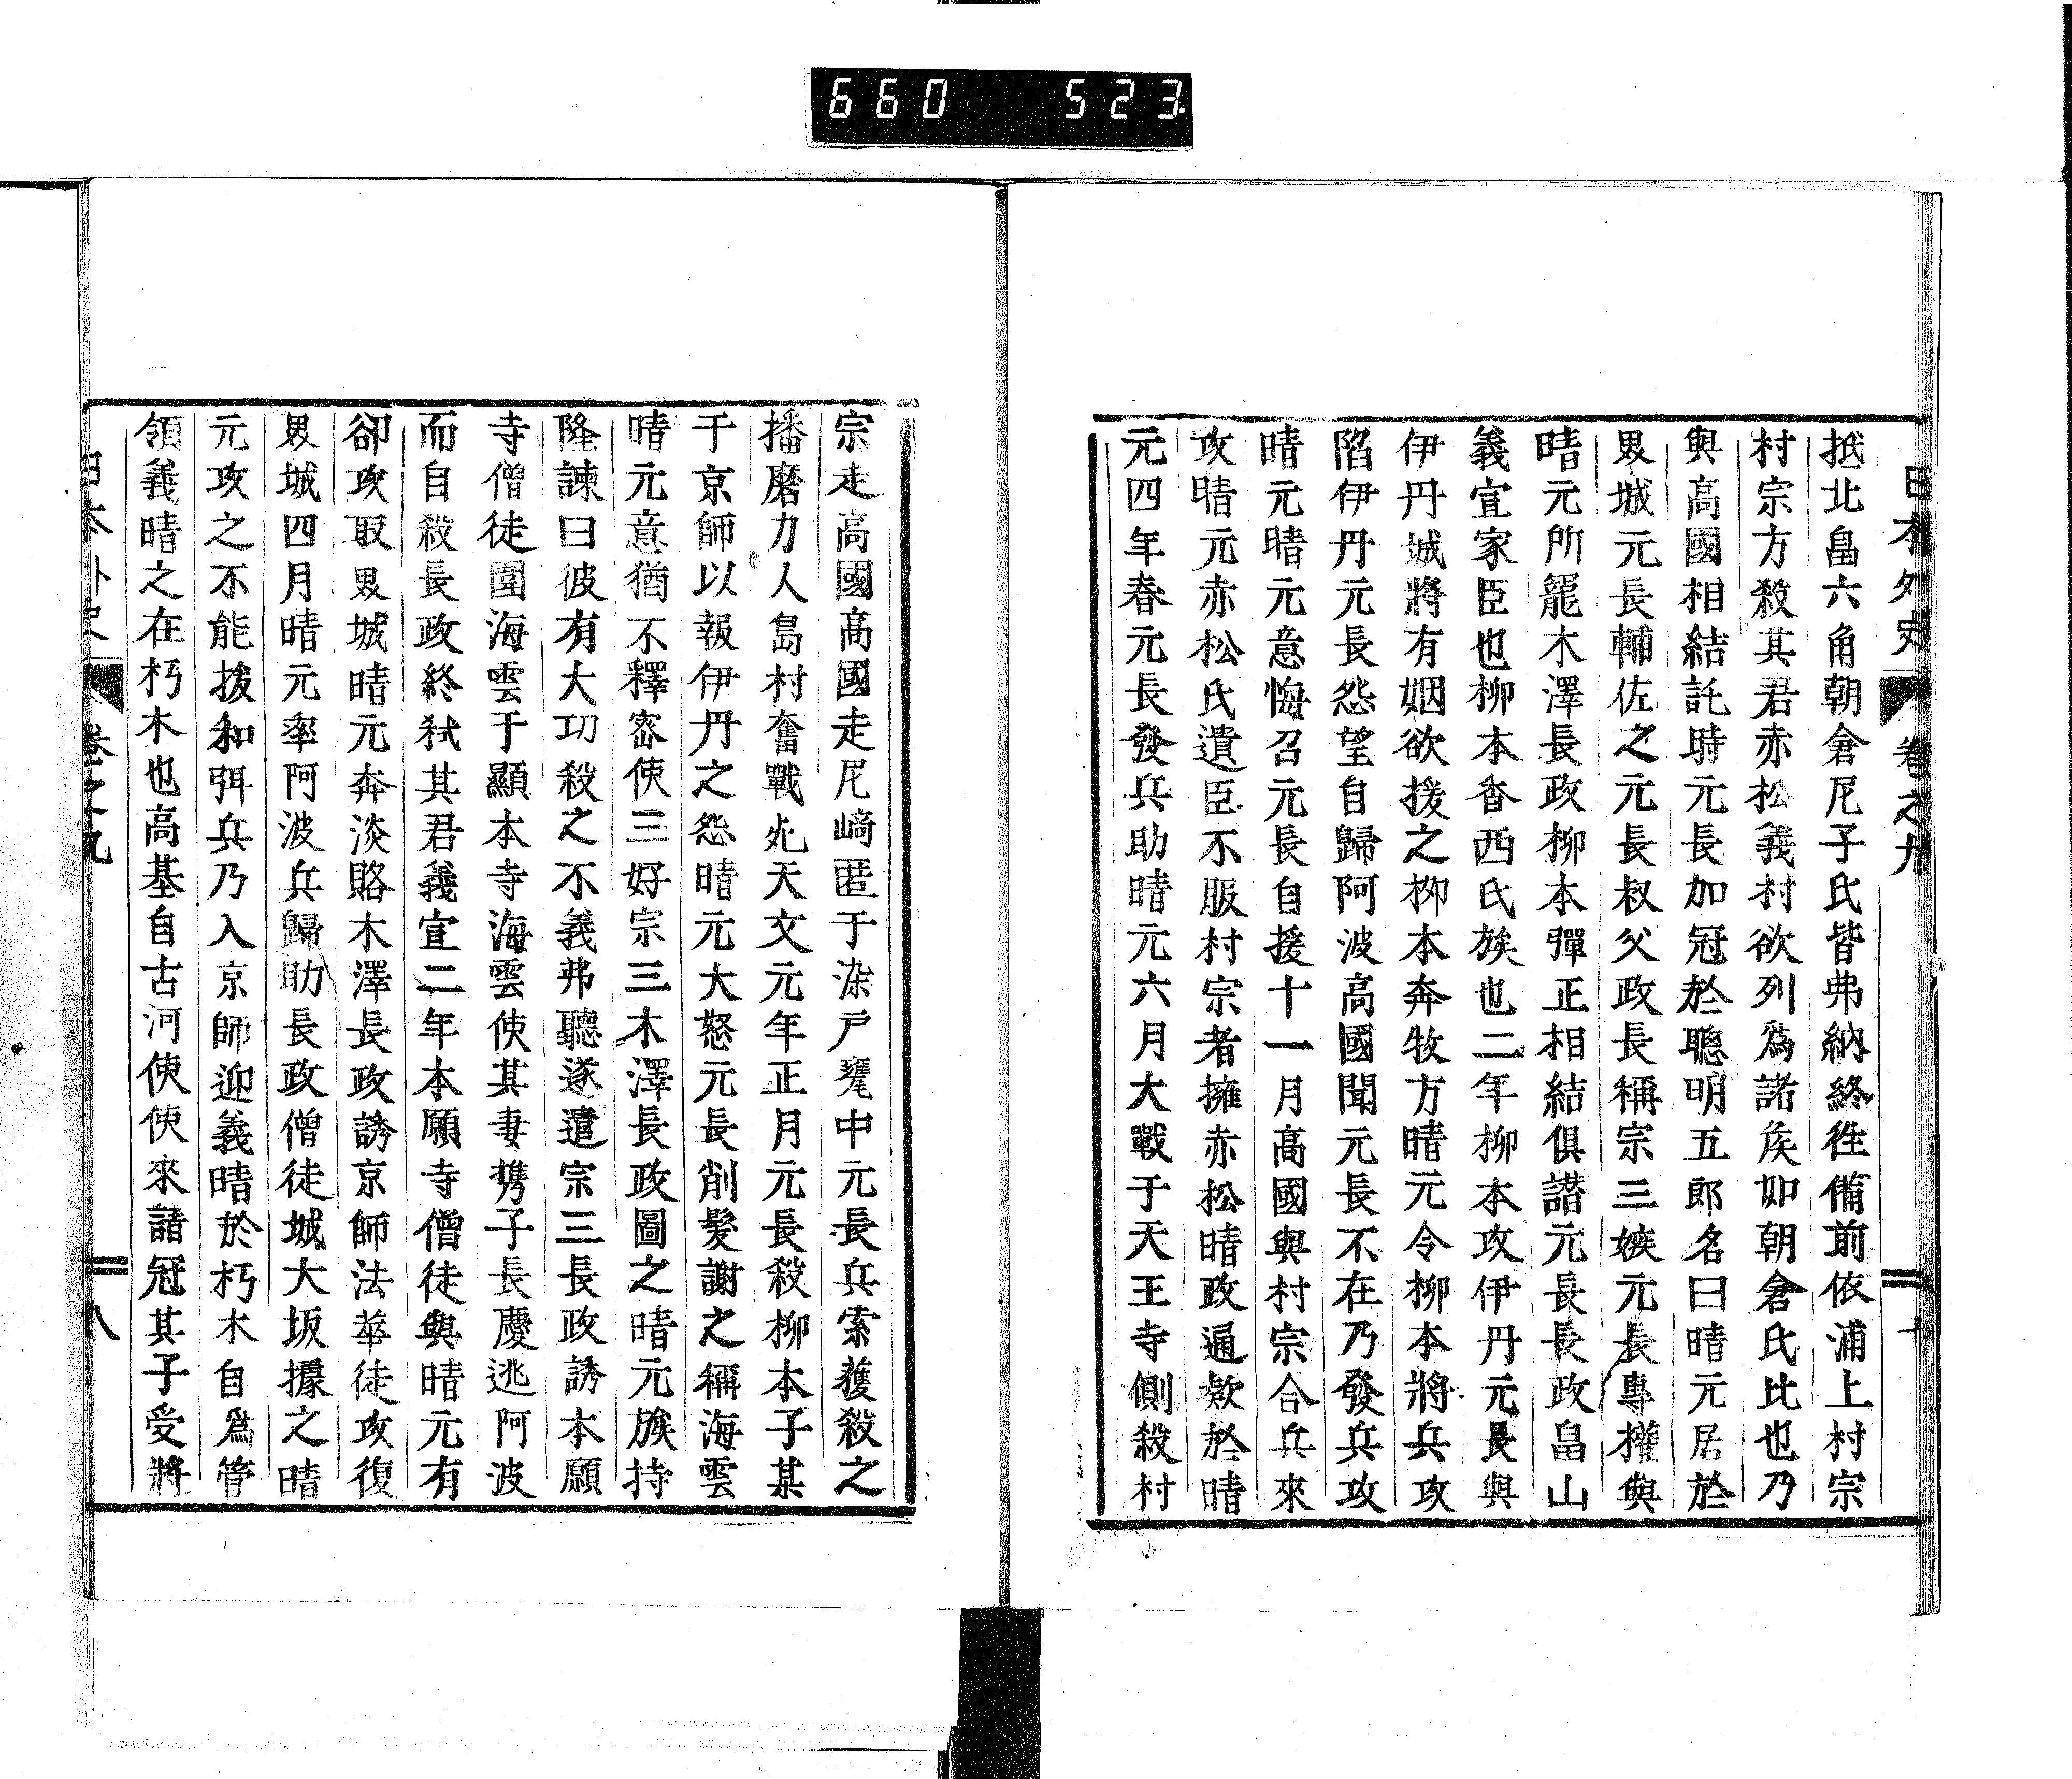 660 523
日本外史 卷之九
抵北畠六角朝倉尼子氏皆弗納終徃備前依浦上村宗
村宗方殺其君赤松義村欲列爲諸矦如朝倉氏比也乃
與高國相結託時元長加冠於聰明五郎名曰晴元居於
界城元長輔佐之元長叔父政長稱宗三嫉元長專權與
晴元所寵木澤長政柳本彈正相結俱譖元長長政畠山
義宣家臣也柳本香西氏族也二年柳本攻伊丹元長與
伊丹城將有姻欲援之柳本奔牧方晴元令柳本將兵攻
陷伊丹元長怨望自歸阿波高國聞元長不在乃發兵攻
晴元晴元意悔召元長自援十一月高國與村宗合兵來
攻晴元赤松氏遺臣不服村宗者擁赤松晴政通欵於晴
元四年春元長發兵助晴元六月大戰于天王寺側殺村
宗走高國高國走尼﨑匿于染戶甕中元長兵索獲殺之
播磨力人島村奮戰死天文元年正月元長殺柳本子某
于京師以報伊丹之怨晴元大怒元長削髮謝之稱海雲
晴元意猶不釋密使三好宗三木澤長政圖之晴元族持
隆諫曰彼有大功殺之不義弗聽遂遣宗三長政誘本願
寺僧徒圍海雲于顯本寺海雲使其妻携子長慶逃阿波
而自殺長政終弒其君義宣二年本願寺僧徒與晴元有
卻攻取界城晴元奔淡路木澤長政誘京師法華徒攻復
界城四月晴元率阿波兵歸助長政僧徒城大坂據之晴
元攻之不能拔和弭兵乃入京師迎義晴於朽木自爲管
領義晴之在朽木也高基自古河使使來請冠其子受將
日本外史 卷之九 八